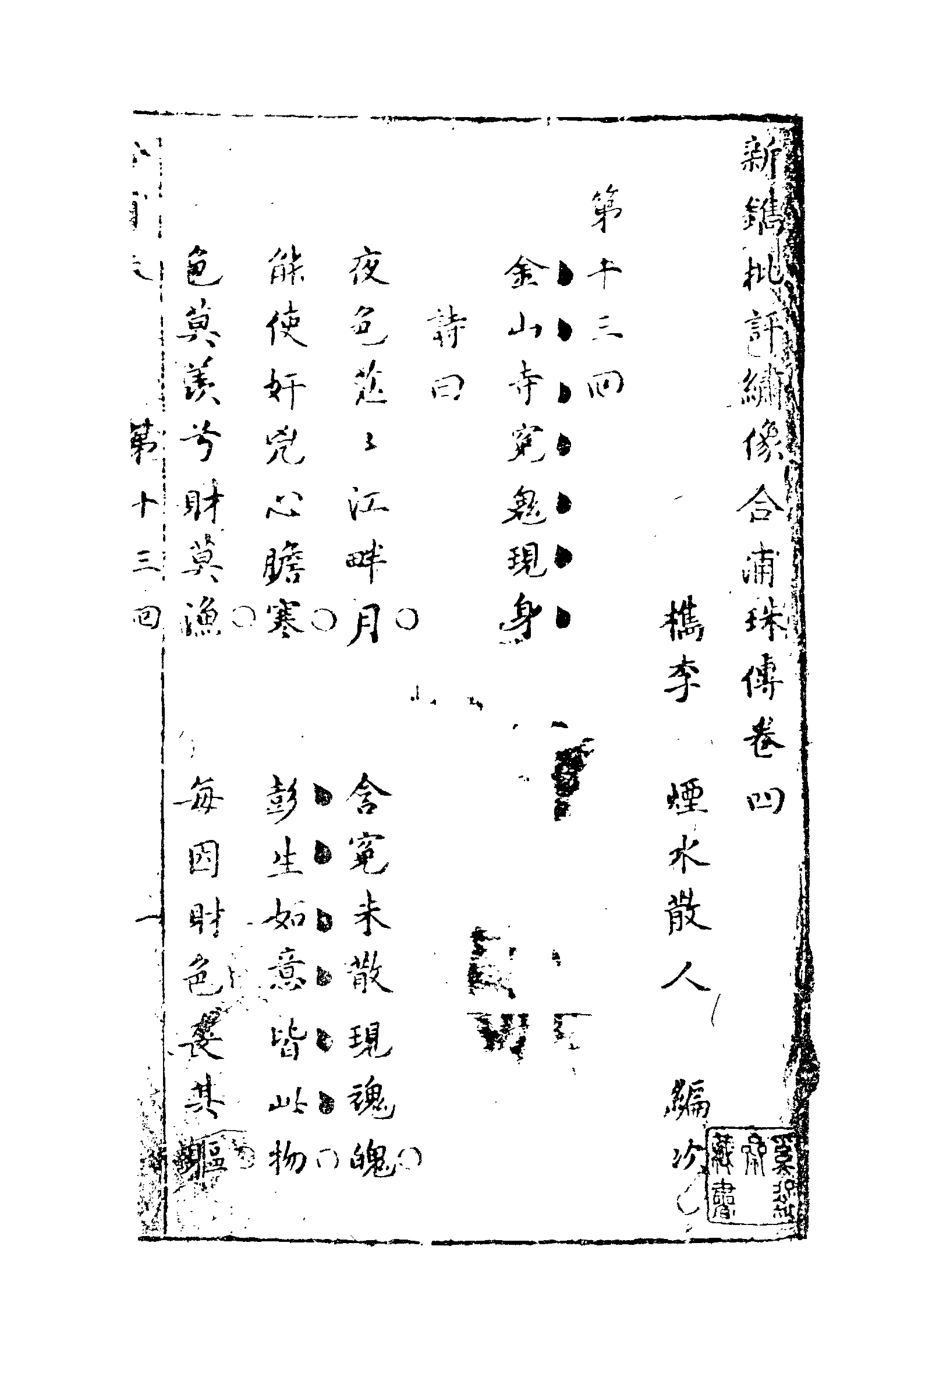 新鐫批評繡像合浦珠傳卷四
檇李 煙水散人 編次
第十三回
金山寺寃鬼現身
詩曰
夜色茫〻江畔月 含寃未散現魂魄
能使奸兇心膽寒 彭生如意皆此物
色莫羡兮財莫漁 每因財色丧其軀
第十三回 一
藏書